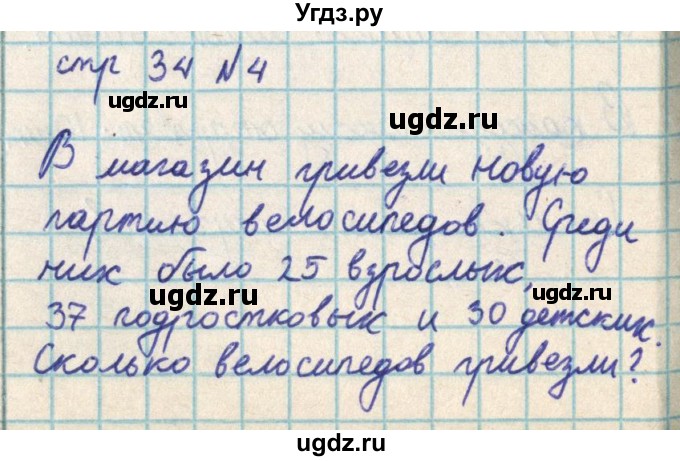 Угдз.ру
стр 34 №4
ugdz.ru
ugdz.ru
В магазин привезли новую
партию велосипедов. Среди
них было 25 взрослых,
ugdz.ru
ugdz.ru
37 подростковых и 30 детских.
Сколько велосипедов привезли?
ugdz.ru